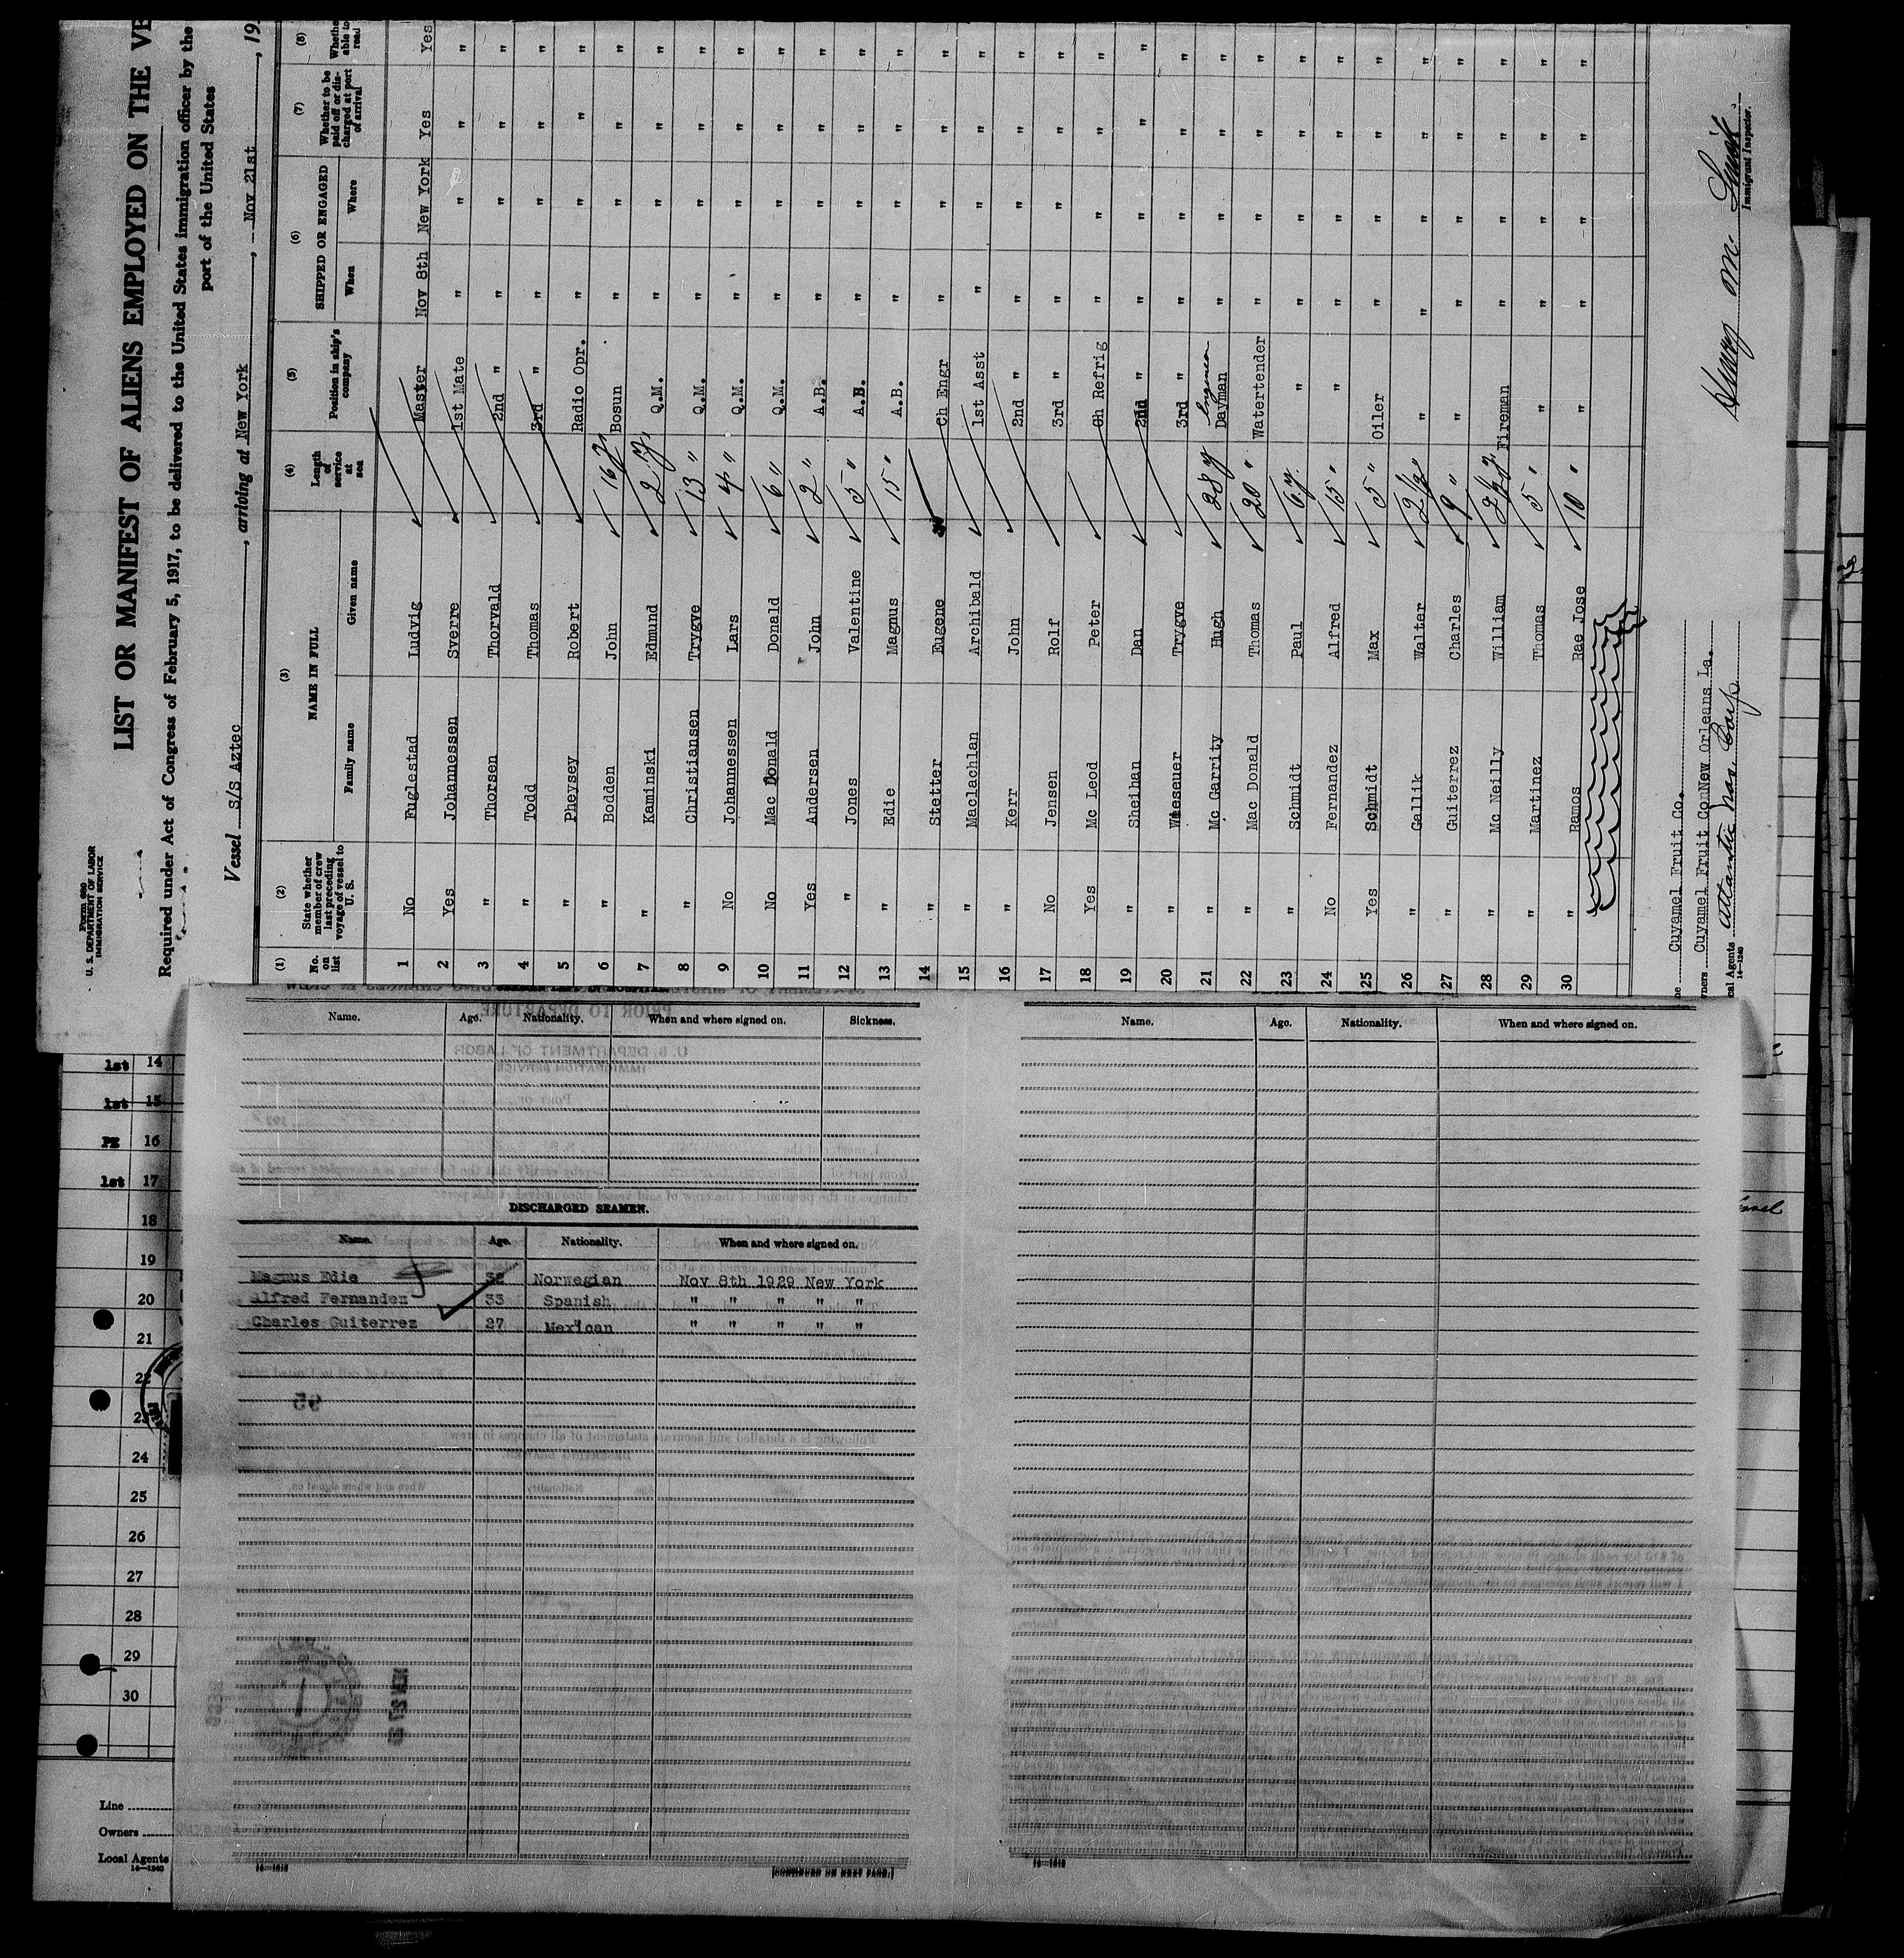 Form 680
U. S. DEPARTMENT OF LABOR
IMMIGRATION SERVICE
LIST OR MANIFEST OF ALIENS EMPLOYED ON THE
Required under Act of Congress of February 5, 1917, to be delivered to the United States immigration officer by the
port of the United States
Vessel S/S Aztec, arriving at New York, Nov 21st, 19
(1) (2) (3) (4) (5) (6) (7) (8)
No. on list State whether member of crew last preceding voyage of vessel to U. S. NAME IN FULL Family name Given name Length of service at sea Position in ship's company SHIPPED OR ENGAGED When Where Whether to be paid off or discharged at port of arrival Whether able to read
1 No Fuglestad Ludvig Master Nov 8th New York Yes Yes
2 Yes Johannessen Sverre 1st Mate " " " "
3 " Thorsen Thorvald 2nd " " " " "
4 " Todd Thomas 3rd " " " " "
5 " Pheysey Robert Radio Opr. " " " "
6 " Bodden John 16 y Bosun " " " "
7 " Kaminski Edmund 2 y Q.M. " " " "
8 " Christiansen Trygve 13 " Q.M. " " " "
9 No Johannessen Lars 4 " Q.M. " " " "
10 No Mac Donald Donald 6 " Q.M. " " " "
11 Yes Andersen John 2 " A.B. " " " "
12 " Jones Valentine 5 " A.B. " " " "
13 " Edie Magnus 15 " A.B. " " " "
14 " Stetter Eugene Ch Engr " " " "
15 " Maclachlan Archibald 1st Asst " " " "
16 " Kerr John 2nd " " " " "
17 No Jensen Rolf 3rd " " " " "
18 Yes Mc Leod Peter Ch Refrig " " " "
19 " Sheihan Dan 2nd " " " " "
20 " Wieseuer Trygve 3rd " " " " "
21 " Mc Garrity Hugh 28 y Engineer Dayman " " " "
22 " Mac Donald Thomas 20 " Watertender " " " "
23 " Schmidt Paul 6 y. " " " " "
24 No Fernandez Alfred 15 " " " " " "
25 Yes Schmidt Max 5 " Oiler " " " "
26 " Gallik Walter 2 1/2 " " " " " "
27 " Guiterrez Charles 9 " " " " " "
28 " Mc Neilly William 2 1/2 y Fireman " " " "
29 " Martinez Thomas 5 " " " " " "
30 " Ramos Rae Jose 10 " " " " " "
ne Cuyamel Fruit Co.
wners Cuyamel Fruit Co New Orleans La.
cal Agents Atlantic Nav. Corp
14—1240
Henry M. Smith
Immigrant Inspector.
1st 14
1st 15
PE 16
1st 17
18
19
20
21
22
23
24
25
26
27
28
29
30
Line
Owners
Local Agents
14—1240
Name. Age. Nationality. When and where signed on. Sickness.
DISCHARGED SEAMEN.
Name. Age. Nationality. When and where signed on.
Magnus Edie 32 Norwegian Nov 8th 1929 New York
Alfred Fernandez 33 Spanish " " " " "
Charles Guiterrez 27 Mexican " " " " "
[CONTINUED ON NEXT PAGE.]
Name. Age. Nationality. When and where signed on.